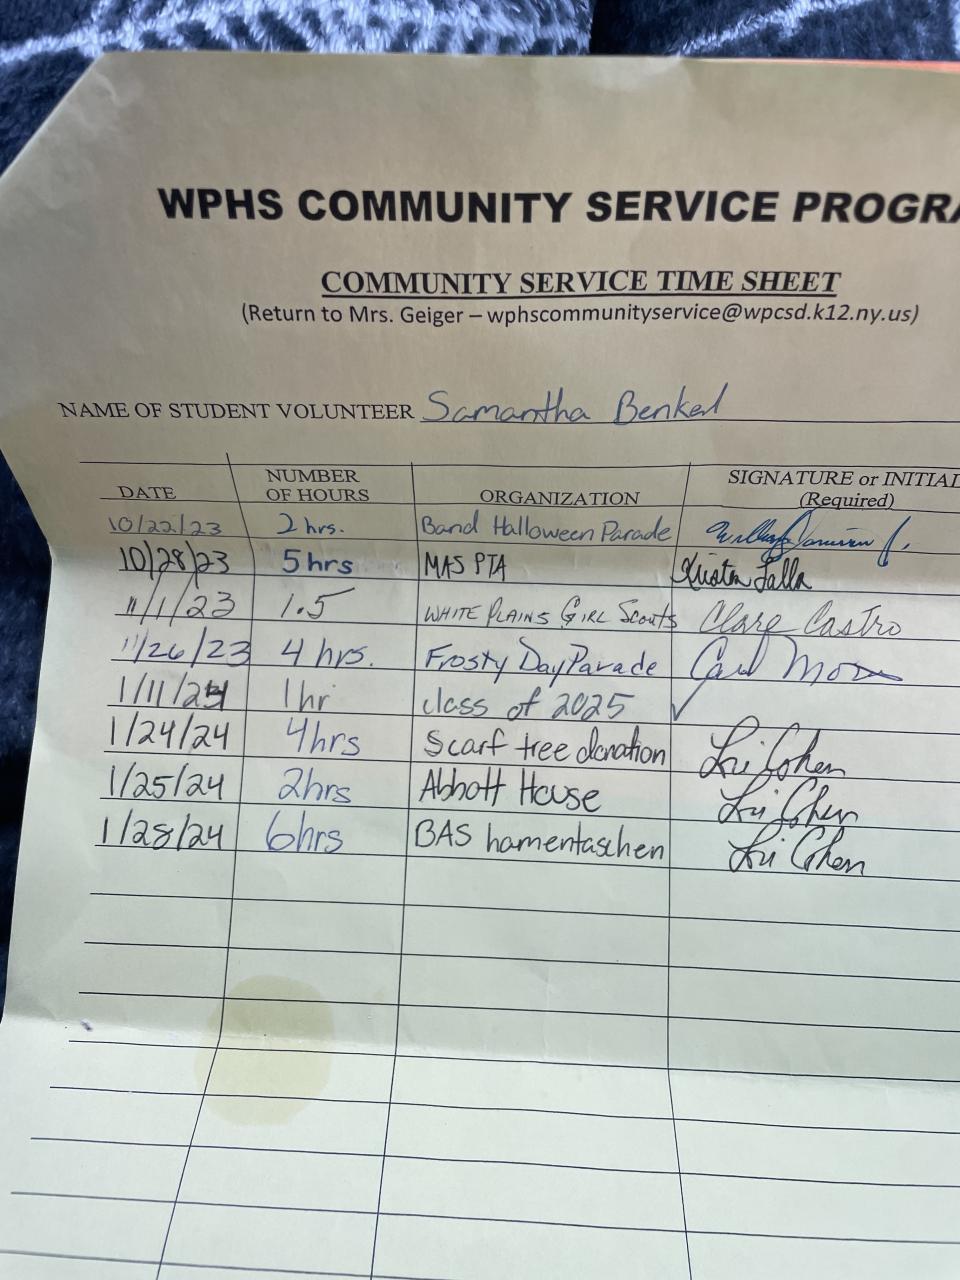 WPHS COMMUNITY SERVICE PROGRA
COMMUNITY SERVICE TIME SHEET
(Return to Mrs. Geiger – wphscommunityservice@wpcsd.k12.ny.us)
NAME OF STUDENT VOLUNTEER Samantha Benkel
DATE NUMBER OF HOURS ORGANIZATION SIGNATURE or INITIAL (Required)
10/22/23 2 hrs. Band Halloween Parade
10/28/23 5hrs MAS PTA Kristen
11/1/23 1.5 WHITE PLAINS GIRL Scouts Clare Castro
11/26/23 4 hrs. Frosty Day Parade
1/11/24 1hr class of 2025 ✓
1/24/24 4hrs Scarf tree donation Lori Cohen
1/25/24 2hrs Abbott House Lori Cohen
1/28/24 6hrs BAS hamentaschen Lori Cohen